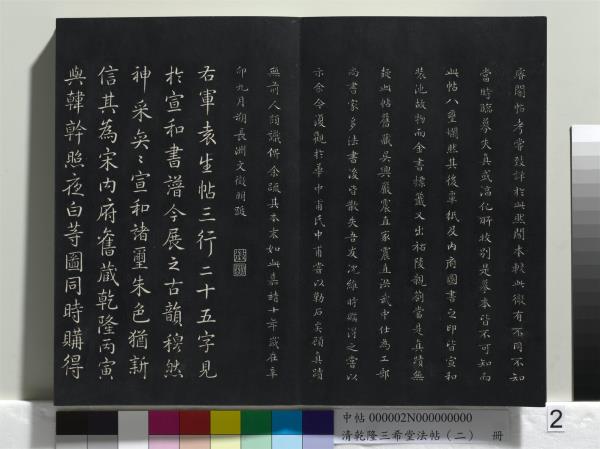 睿閣帖考嘗致詳於此然閣本較此微有不同不知
當時臨摹失真或淳化所收別是摹本皆不可知而
此帖八璽爛然其後覃紙及內府圖書之印皆宣和
裝池故物而金書標籤又出祐陵親劄當是真蹟無
疑此帖舊藏吳興嚴震直家震直洪武中仕為工部
尚書家多法書後皆散失吾友沈維時購得之嘗以
示余今復觀於華中甫氏中甫嘗以勒石矣顧真蹟
無前人題識俾余疏其本末如此嘉靖十年歲在辛
卯九月朔長洲文徵明跋
右軍袁生帖三行二十五字見
於宣和書譜今展之古韻穆然
神采奕〻宣和諸璽朱色猶新
信其為宋內府舊藏乾隆丙寅
與韓幹照夜白等圖同時購得
中帖 000002N000000000
清乾隆三希堂法帖（二） 冊
2